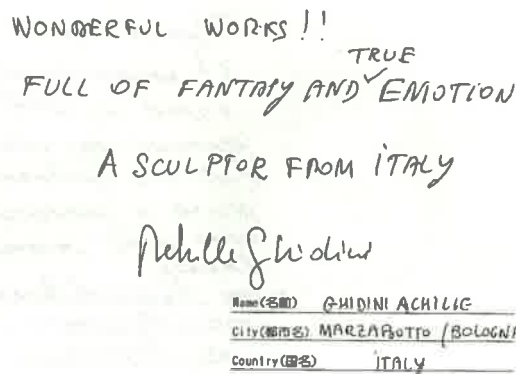 WONDERFUL WORKS!!
TRUE
FULL OF FANTASY AND EMOTION
A SCULPTOR FROM ITALY
Achille Ghidini
Name(名前) GHIDINI ACHILLE
City(都市名) MARZABOTTO (BOLOGNA
Country(国名) ITALY